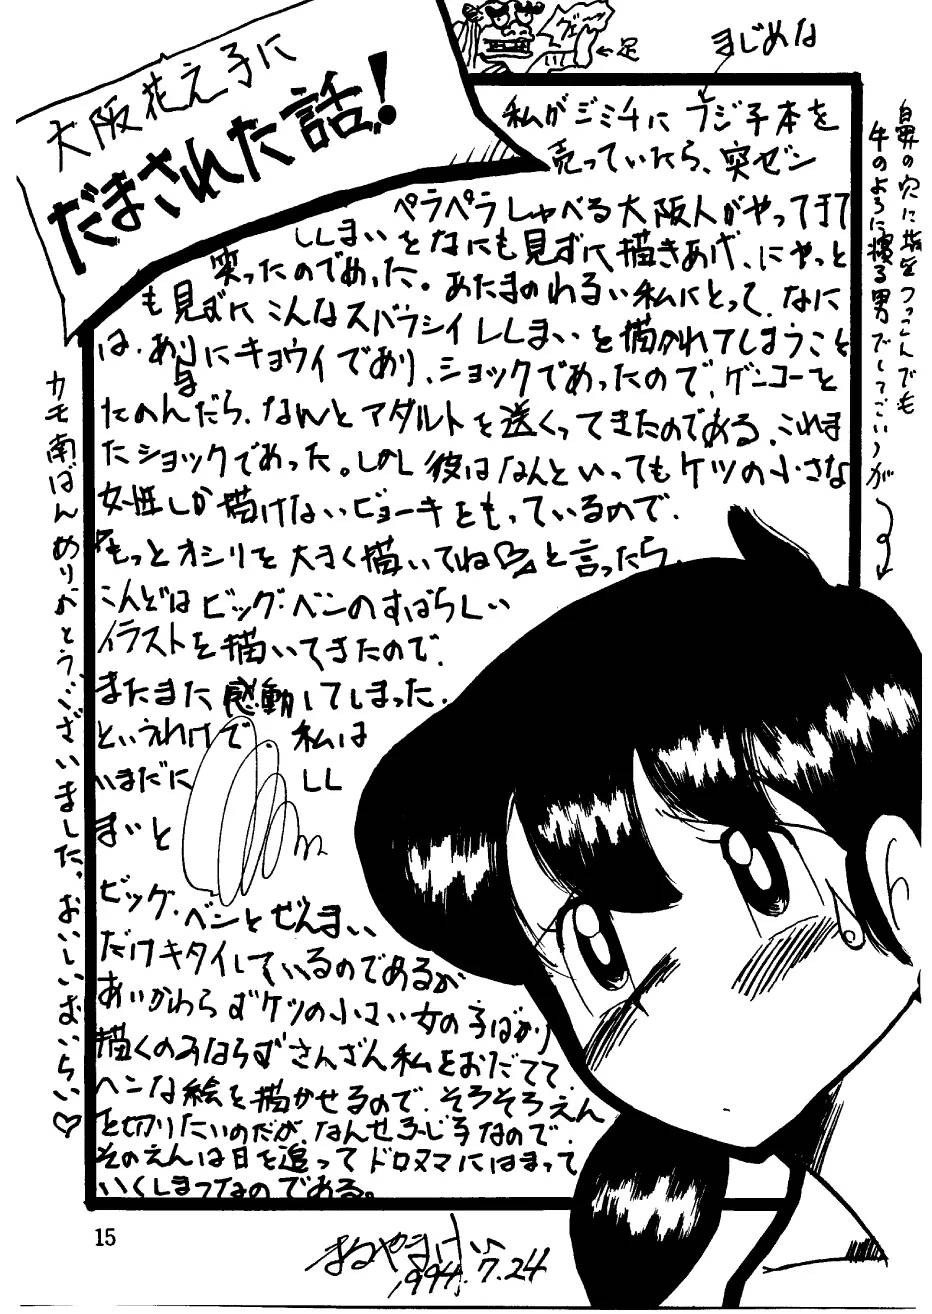 大阪花え子に
だまされた話!
←足
まじめな
私がジミチにフジ子本を
売っていたら、突ゼン
ペラペラしゃべる大阪人がやってきて
ししまいをなにも見ずに描きあげ、にやっと
笑ったのであった。あたまのわるい私にとって、なに
も見ずにこんなスバラシイししまいを描かれてしまうこと
は、ありにキョウイであり、ショックであったので、ゲンコーを
たのんだら、なんとアダルトを送くってきたのである。これま
たショックであった。しかし彼はなんといってもケツの小さな
女性しか描けないビョーキをもっているので、
『もっとオシリを大きく描いてね♡』と言ったら、
こんどはビッグ・ベンのすばらしい
イラストを描いてきたので、
またまた感動してしまった。
というわけで 私は
いまだに しし
まいと
ビッグ・ベンとぜんまい
だけキタイしているのであるが
あいかわらずケツの小さい女の子ばかり
描くのみならずさんざん私をおだてて、
ヘンな絵を描かせるので、そろそろえん
を切りたいのだが、なんせふじ子なので、
そのえんは日を追ってドロヌマにはまって
いくしまつなのである。
鼻の穴に指をつっこんでも
牛のように寝る男でしてございうが
カモ南ばんありがとうございました。おいしいおいらい♡
15
まるやまけい
1994.7.24